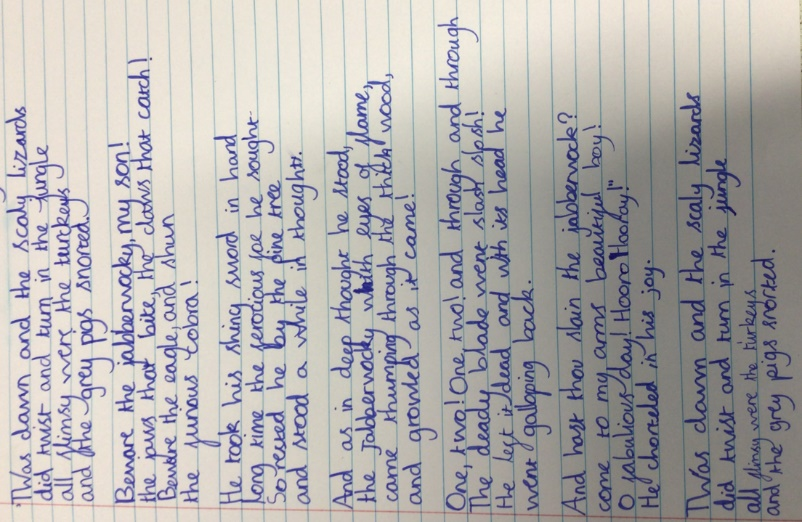 'Twas dawn and the scaly lizards
did twist and turn in the jungle
all flimsy were the turkeys
and the grey pigs snorted.
Beware the jabberwocky, my son!
the jaws that bite, the claws that catch!
Beware the eagle, and shun
the furious cobra!
He took his shing sword in hand
long time the ferotious foe he sought
So rested he by the pine tree
and stood a while in thought.
And as in deep thought he stood,
the jabberwocky with eyes of flame,
came thumping through the thick wood,
and growled as it came!
One, two! One, two! and through and through
The deady blade went slash slosh!
He left it dead and with its head he
went galloping back.
And hast thou slain the jabberwock?
come to my arms beautiful boy!
O fabulous day! Hooro Hooray!"
He chorteled in his joy.
'Twas dawn and the scaly lizards
did twist and turn in the jungle
all flimsy were the turkeys
and the grey pigs snorted.